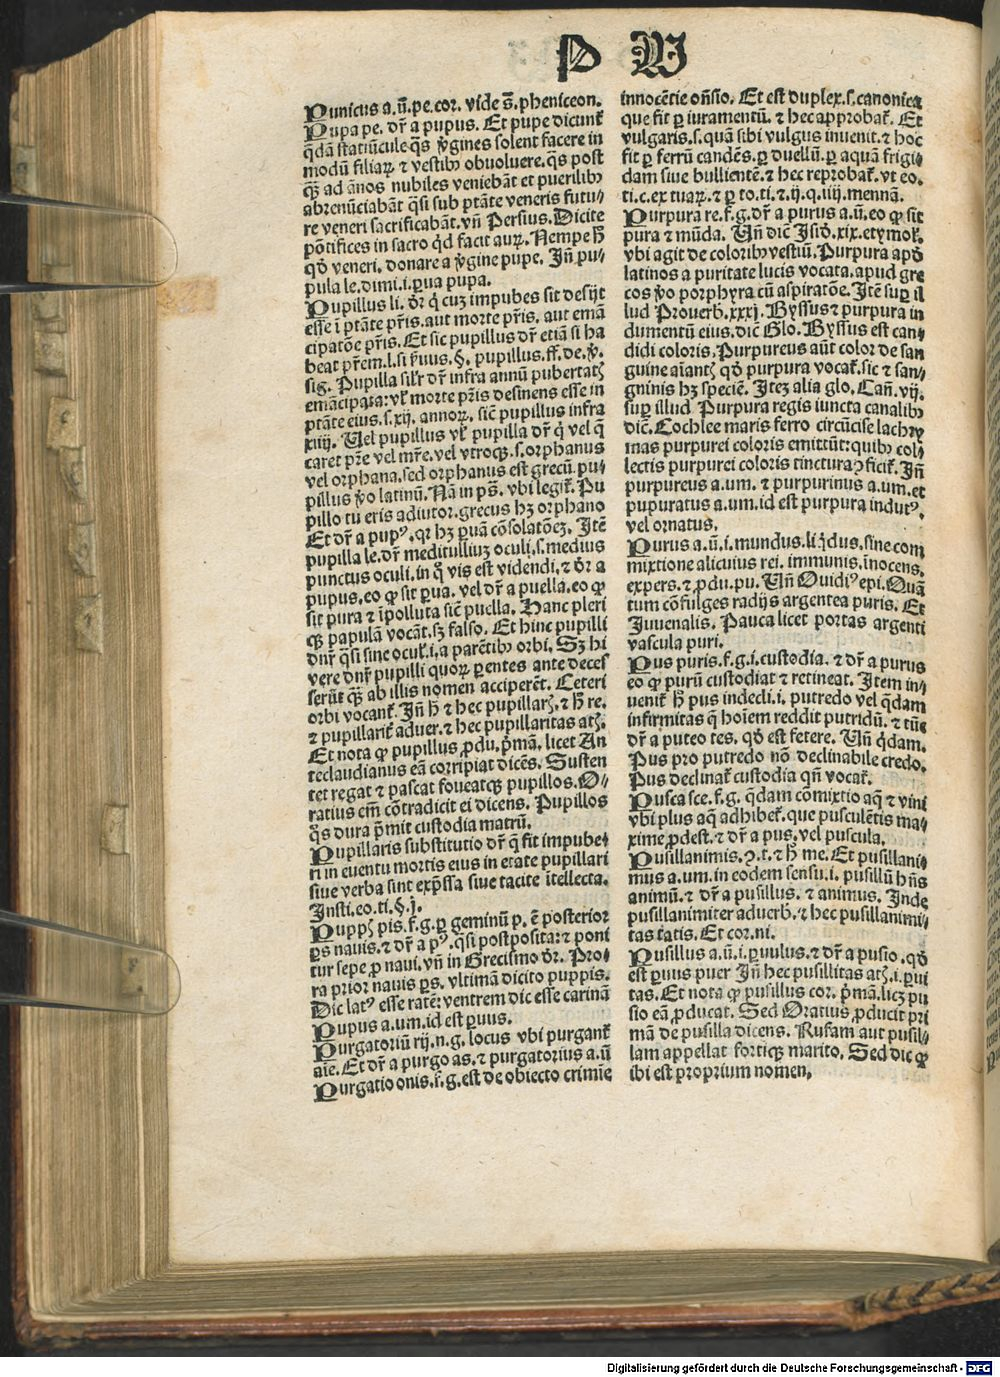 P W
Punicus a.ū.pe.cor. vide s̄. pheniceon.
Pupa pe. dr̄ a pupus. Et pupe dicunt᷑
q̄dā statiūcule q̄s ꝟgines solent facere in
modū filiaꝝ ⁊ vestibꝫ obuoluere. q̄s post
qꝫ ad ānos nubiles veniebāt et puerilibꝫ
abrenūciabāt q̄si sub ptāte veneris futu⸗
re veneri sacrificabāt. vn̄ Persius. Dicite
pōtifices in sacro qͥd facit auꝝ. Nempe h̄
qd̄ veneri. donare a ꝟgine pupe. Jn̄ pu⸗
pula le. dimi. i. ꝑua pupa.
Pupillus li. dr̄ qͥ cuꝫ impubes sit desijt
esse ī ptāte pr̄is. aut morte pr̄is. aut emā
cipatōe pr̄is. Et sic pupillus dr̄ etiā si ha
beat pr̄em. l. si ꝟuus. §. pupillus. ff. de. ꝟ.
sig. Pupilla silr̄ dr̄ infra annū pubertatꝭ
emācipata: vl̓ morte pr̄is desinens esse in
ptāte eius. s. xij. annoꝝ. sic̄ pupillus infra
xiiij. Uel pupillus vl̓ pupilla dr̄ qͥ vel q̄
caret pr̄e vel mr̄e. vel vtroqꝫ. s. orphanus
vel orphana. sed orphanus est grecū. pu⸗
pillus ꝟo latinū. Nā in ps̄. vbi legit᷑. Pu
pillo tu eris adiutor. grecus hꝫ orphano
Et dr̄ a pupꝰ. qr hꝫ ꝑuā cōsolatōeꝫ. Jtē
pupilla le. dr̄ meditulliuꝫ oculi. s. medius
punctus oculi. in qͦ vis est videndi. ⁊ dr̄ a
pupus. eo ꝙ sit ꝑua. vel dr̄ a puella. eo ꝙ
sit pura ⁊ īpolluta sic̄ puella. Hanc pleri
qꝫ papulā vocāt. sꝫ falso. Et hinc pupilli
dnr̄ q̄si sine ocul̓. i. a parētibꝫ orbi. Sꝫ hi
vere dnr̄ pupilli quoꝝ ꝑentes ante deces
serūt qꝫ ab illis nomen acciperēt. Ceteri
orbi vocant᷑. Jn̄ h̄ ⁊ hec pupillarꝭ. ⁊ h̄ re.
⁊ pupillarit᷑ aduer. ⁊ hec pupillaritas atꝭ.
Et nota ꝙ pupillus ꝓdu. pͥmā. licet An
teclaudianus eā corripiat dicēs. Susten
tet regat ⁊ pascat foueatqꝫ pupillos. O⸗
ratius em̄ cōtradicit ei dicens. Pupillos
q̄s dura p̄mit custodia matrū.
Pupillaris substitutio dr̄ q̄ fit impube⸗
ri in euentu mortis eius in etate pupillari
siue verba sint exp̄ssa siue tacite ītellecta.
Jnsti. eo. ti. §. j.
Puppꝭ pis. f. g. ꝑ geminū p. ē posterior
ꝑs nauis. ⁊ dr̄ a pꝰ. q̄si postposita: ⁊ poni
tur sepe ꝓ naui. vn̄ in Grecismo dr̄. Pro⸗
ra prior nauis ꝑs. vltimā dicito puppis.
Dic latꝰ esse ratē: ventrem dic esse carinā
Pupus a. um. id est ꝑuus.
Purgatoriū rij. n. g. locus vbi purgant᷑
aīe. Et dr̄ a purgo as. ⁊ purgatorius a. ū
Purgatio onis. f. g. est de obiecto crimīe
innocētie on̄sio. Et est duplex. s. canonica
que fit ꝑ iuramentū. ⁊ hec approbat᷑. Et
vulgaris. s. quā sibi vulgus inuenit. ⁊ hoc
fit ꝑ ferrū candēs. ꝑ duellū. ꝑ aquā frigi⸗
dam siue bullientē. ⁊ hec reprobat᷑. vt eo.
ti. c. ex tuaꝝ. ⁊ ꝑ to. ti. ⁊ ij. q. iiij. mennā.
Purpura re. f. g. dr̄ a purus a. ū. eo ꝙ sit
pura ⁊ mūda. Un̄ dic̄ Jsid̓. xix. etymol̓.
vbi agit de coloribꝫ vestiū. Purpura apd̓
latinos a puritate lucis vocata. apud gre
cos ꝟo porphyra cū aspiratōe. Jtē suꝑ il
lud Prouerb̓. xxxj. Byssus ⁊ purpura in
dumentū eius. dic̄ Glo. Byssus est can⸗
didi coloris. Purpureus aūt color de san
guine aīantꝭ qd̓ purpura vocat᷑. sic ⁊ san⸗
gninis hꝫ speciē. Jteꝫ alia glo. Can̄. vij.
suꝑ illud Purpura regis iuncta canalibꝫ
dic̄. Cochlee maris ferro circūcise lachry
mas purpurei coloris emittūt: quibꝫ col⸗
lectis purpurei coloris tinctura ꝯficit᷑. Jn̄
purpureus a. um. ⁊ purpurinus a. um. et
pupuratus a. um. id est purpura indutꝰ.
vel ornatus.
Purus a. ū. i. mundus. liqͥdus. sine com
mixtione alicuius rei. immunis. īnocens.
expers. ⁊ ꝓdu. pu. Un̄ Ouidiꝰ epi. Quā
tum cōfulges radijs argentea puris. Et
Juuenalis. Pauca licet portas argenti
vascula puri.
Pus puris. f. g. i. custodia. ⁊ dr̄ a purus
eo ꝙ purū custodiat ⁊ retineat. Jtem in⸗
uenit᷑ h̄ pus indecli. i. putredo vel q̄dam
infirmitas q̄ hoīem reddit putridū. ⁊ tūc
dr̄ a puteo tes. qd̓ est fetere. Un̄ qͥdam.
Pus pro putredo nō declinabile credo.
Pus declinat᷑ custodia qn̄ vocat᷑.
Pusca sce. f. g. q̄dam cōmixtio aq̄ ⁊ vini
vbi plus aq̄ adhibet᷑. que pusculētis ma⸗
xime ꝓdest. ⁊ dr̄ a pus. vel puscula.
Pusillanimis. ꝯ. t. ⁊ h̄ me. Et pusillani⸗
mus a. um. in eodem sensu. i. pusillū hn̄s
animū. ⁊ dr̄ a pusillus. ⁊ animus. Jnde
pusillanimiter aduerb̓. ⁊ hec pusillanimi⸗
tas tatis. Et cor. ni.
Pusillus a. ū. i. ꝑuulus. ⁊ dr̄ a pusio. qd̓
est ꝑuus puer Jn̄ hec pusillitas atꝭ. i. ꝑui
tas. Et nota ꝙ pusillus cor. pͥmā. licꝫ pu
sio eā ꝓducat. Sed Oratius ꝓducit pri
mā de pusilla dicens. Rufam aut pusil⸗
lam appellat fortiqꝫ marito. Sed dic ꝙ
ibi est proprium nomen.
Digitalisierung gefördert durch die Deutsche Forschungsgemeinschaft - DFG